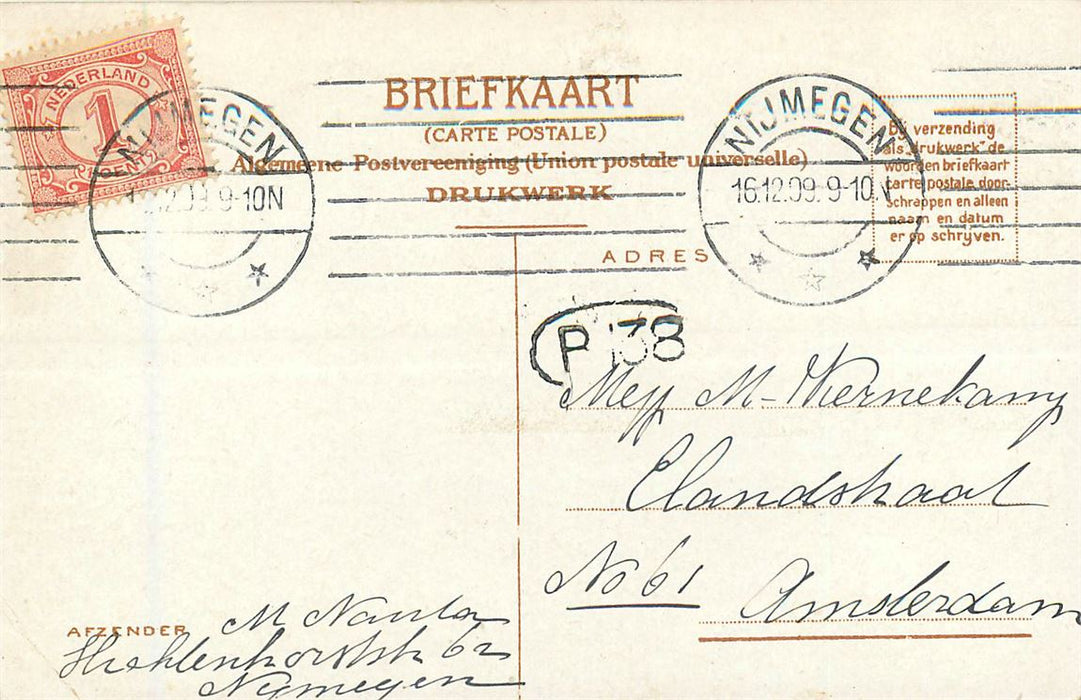 BRIEFKAART
(CARTE POSTALE)
Algemeene Postvereeniging (Union postale universelle)
DRUKWERK
NEDERLAND
1
CENT
NIJMEGEN
12.09. 9-10N
NIJMEGEN
16.12.09. 9-10N
Bij verzending
als "drukwerk" de
woorden briefkaart
carte postale door-
schrappen en alleen
naam en datum
er op schrijven.
ADRES
P 138
Mejf M- Wernekamp
Elandstraat
No 61
Amsterdam
AFZENDER
M Nauta
62
Nymegen